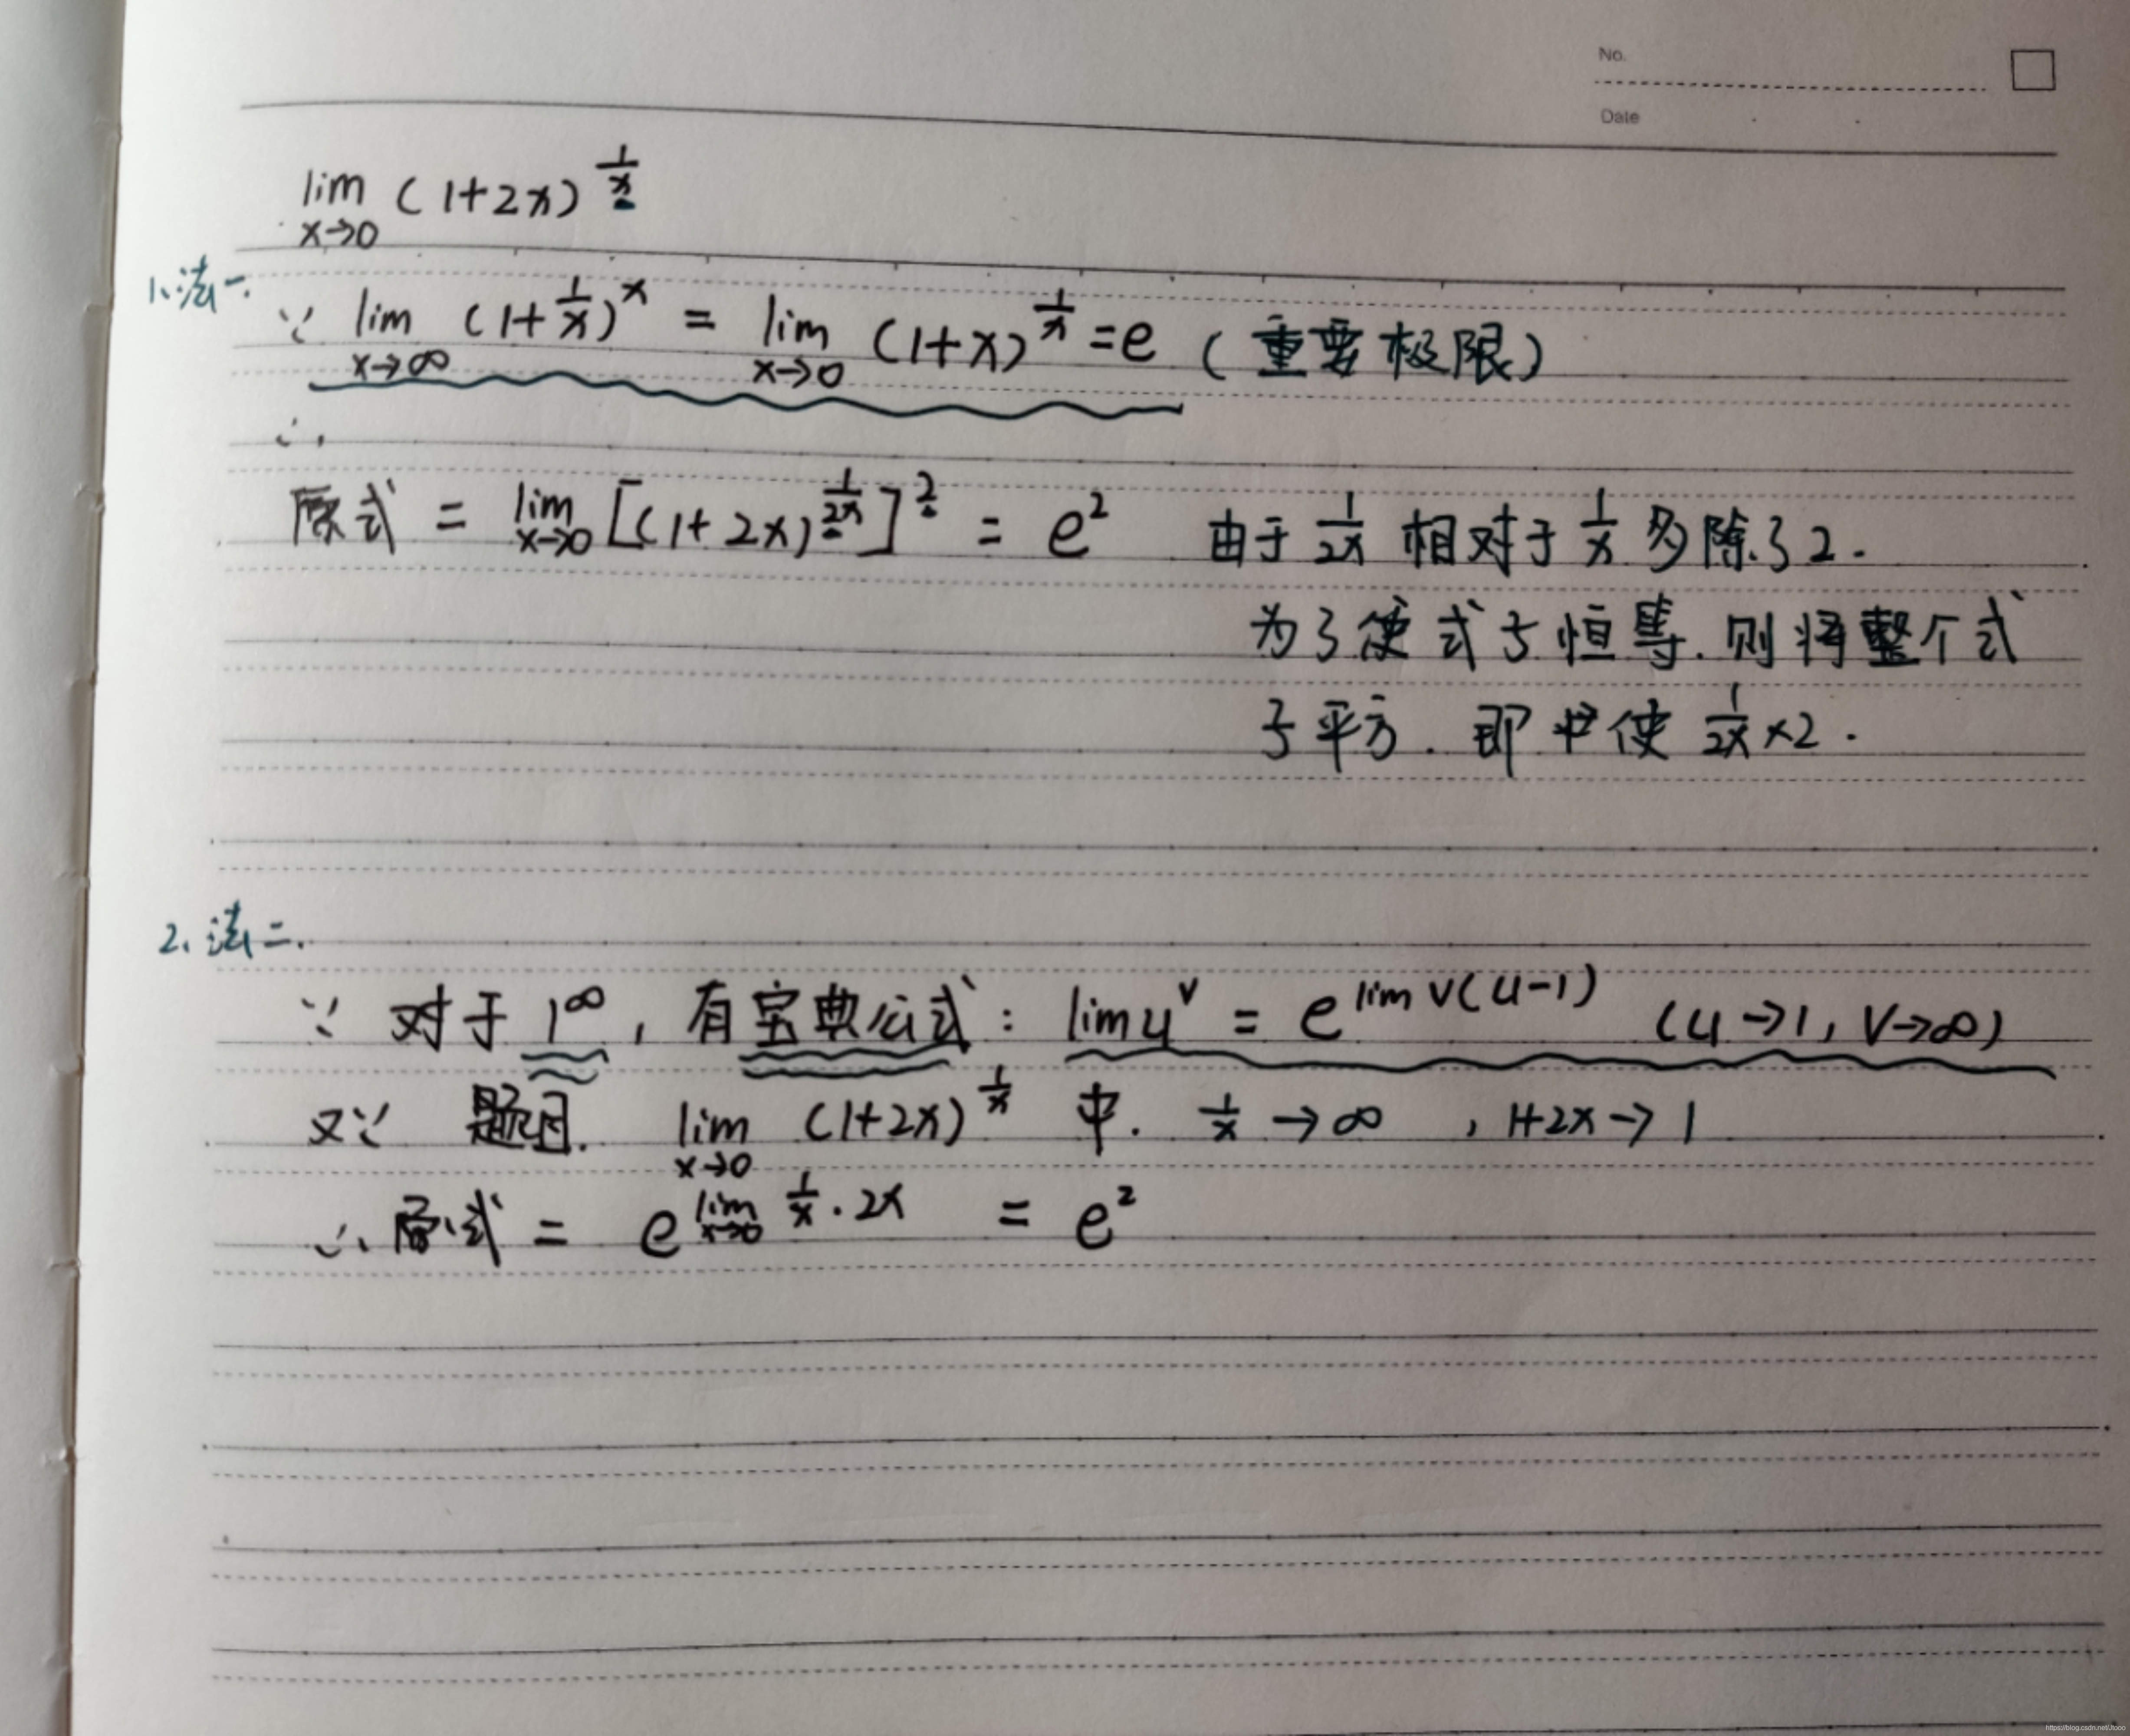 No.
Date
lim x→0 (1+2x)^(1/x)
1、法一.
∵ lim x→∞ (1+1/x)^x = lim x→0 (1+x)^(1/x) = e (重要极限)
∴
原式 = lim x→0 [(1+2x)^(1/2x)]^2 = e^2 由于 1/2x 相对于 1/x 多除了2.
为了使式子恒等.则将整个式
子平方. 即 使 1/2x ×2.
2、法二.
∵ 对于 1^∞, 有宝典公式: lim u^v = e^(lim v(u-1)) (u→1, v→∞)
又∵ 题目. lim x→0 (1+2x)^(1/x) 中. 1/x → ∞ , 1+2x → 1
∴ 原式 = e^(lim x→0 1/x · 2x) = e^2